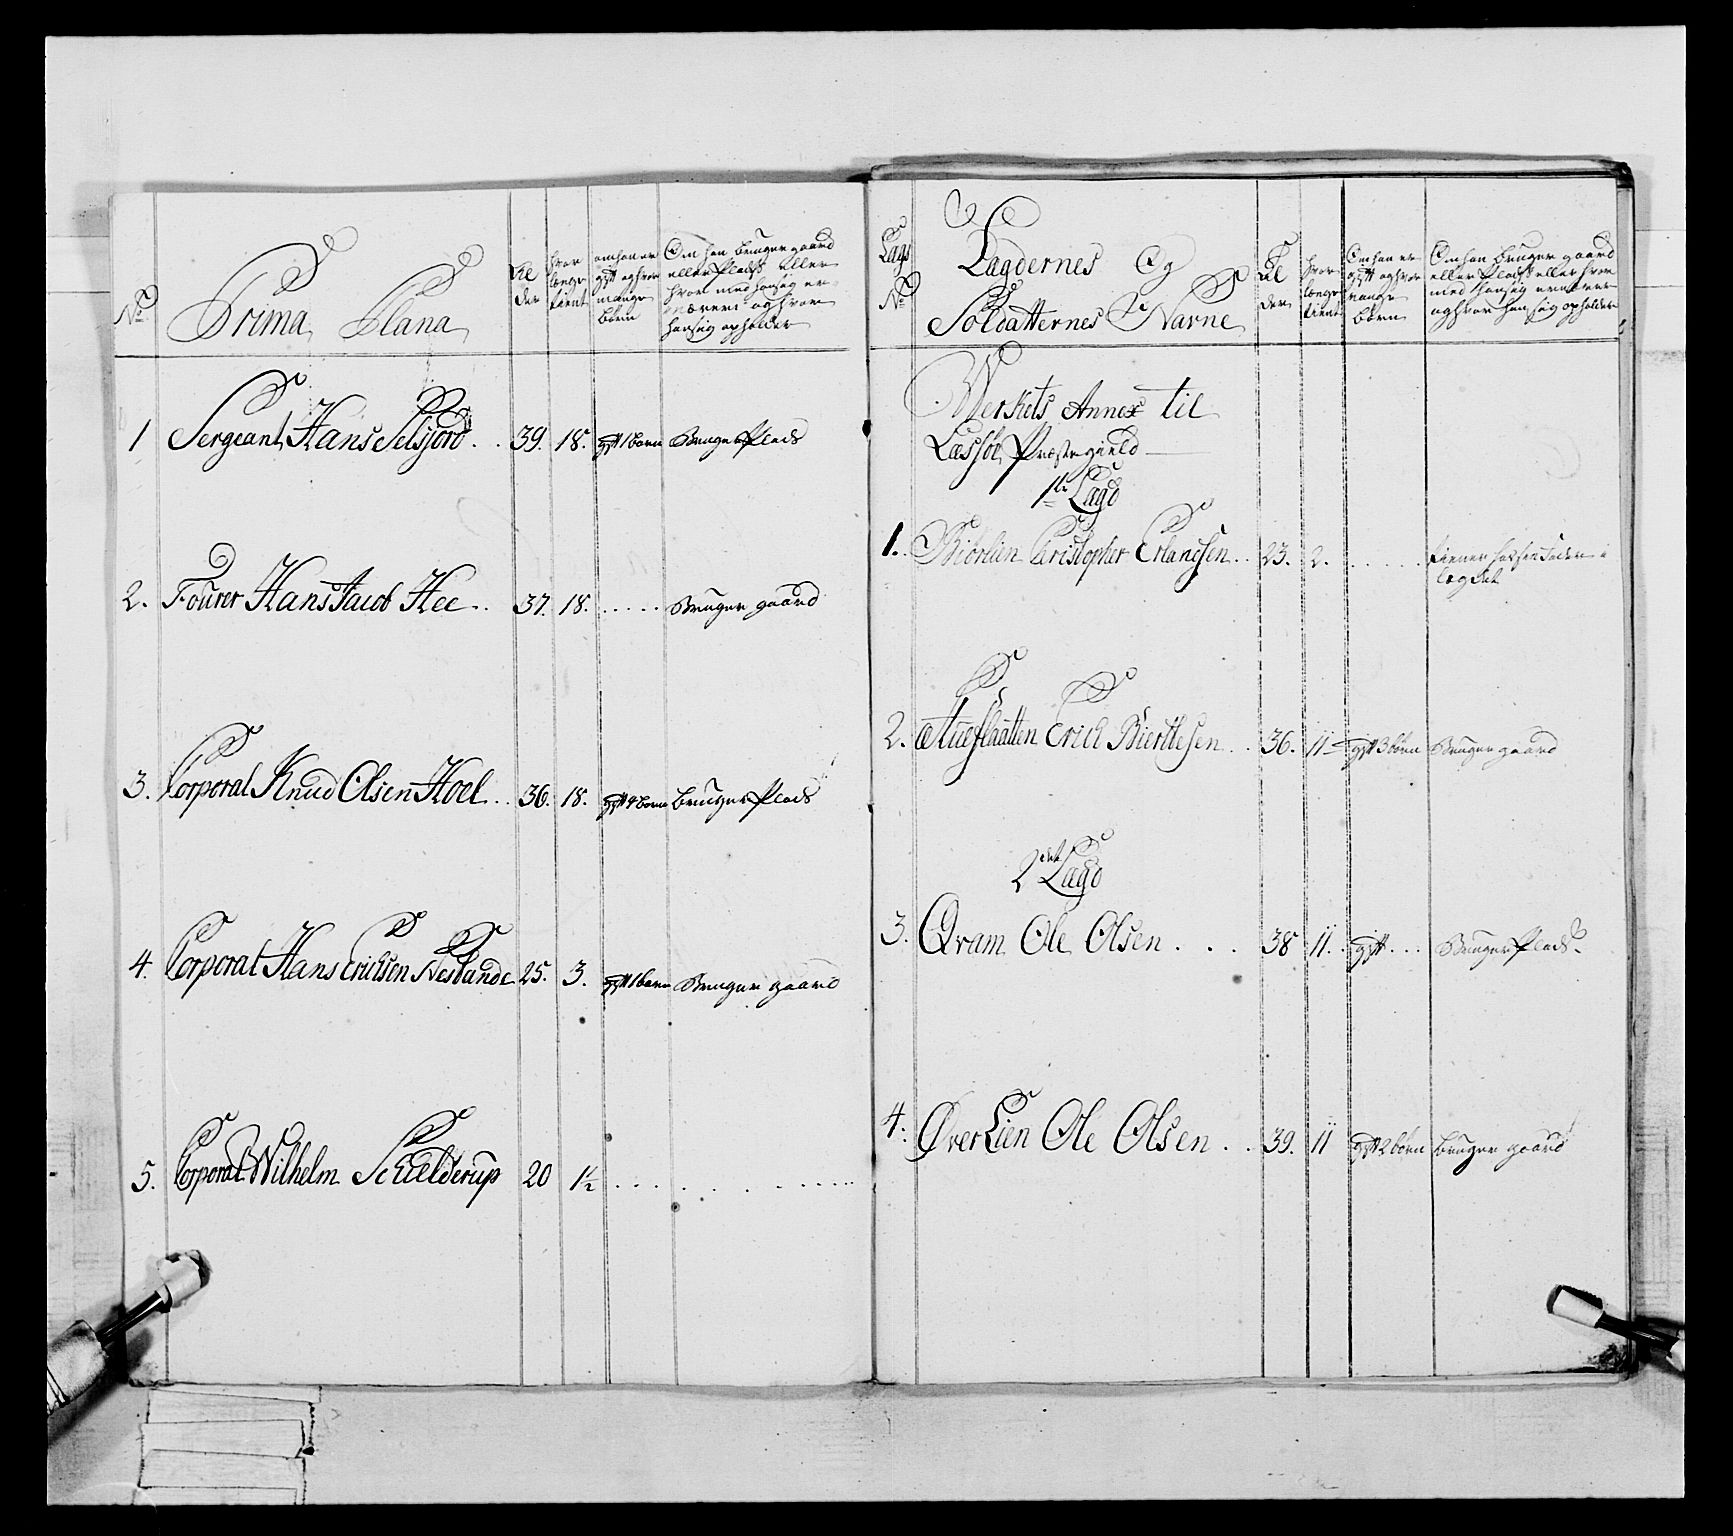 No
Prima Plana
Al
der
hvor
længe
tient
om han er
gift og hvor
mange
børn
Om han bruger gaard
eller Plads eller
hvor med han sig er-
nærer og hvor
han sig opholder
1 Sergeant Hans Selsjord . . 39. 18. gift 1 børn Bruger Plads
2. Fourer Hans Jacob Hee . . 37. 18. . . . . . Bruger gaard
3. Corporal Knud Olsen Hoel . . 36. 18. gift 4 børn bruger Plads
4. Corporal Hans Erichsen Nesbande 25. 3. gift 1 børn Bruger gaard
5. Corporal Wilhelm Schielderup 20 1½ . . . . . . . . .
Lægs
No
Lægdernes Og
Soldatternes Navne
Al
der
hvor
længe
tient
Om han er
gift og hvor
mange
børn
Om han bruger gaard
eller Plads eller hvor
med han sig ernærer
og hvor han sig opholder
Werkets Annex til
Læssøe Præstegield
1te Lægd
1. Biørlien Christopher Erlandsen . . 23. 2. . . . . . tiener hos sin Fader i
lægdet
2. Erich Bierthesen . . 36. 11 gift 3 børn Bruger gaard
2det Lægd
3. Qvam Ole Olsen . . . 38 11. gift . . . Bruger Plads
4. Øver Lien Ole Olsen . . 39. 11 gift 2 børn bruger gaard